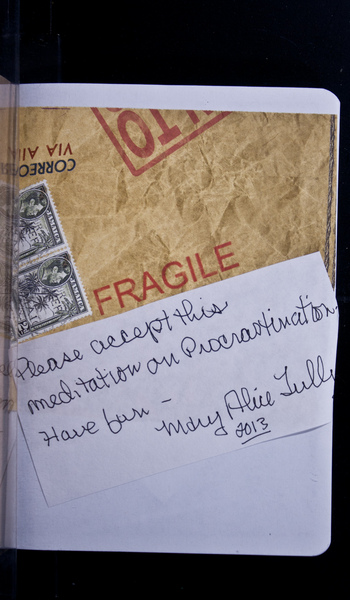 CORREO
VIA AI
FRAGILE
Please accept this
meditation on Procrastination.
Have fun –
Mary Alice Tully
2013